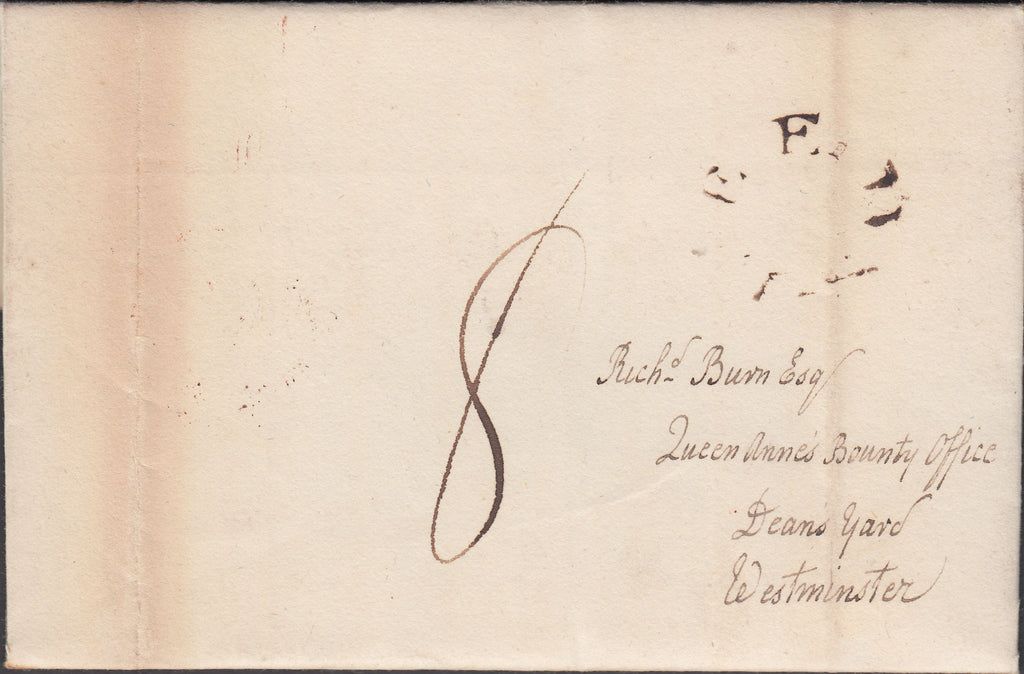 8
Richd Burn Esq
Queen Anne's Bounty Office
Deans Yard
Westminster